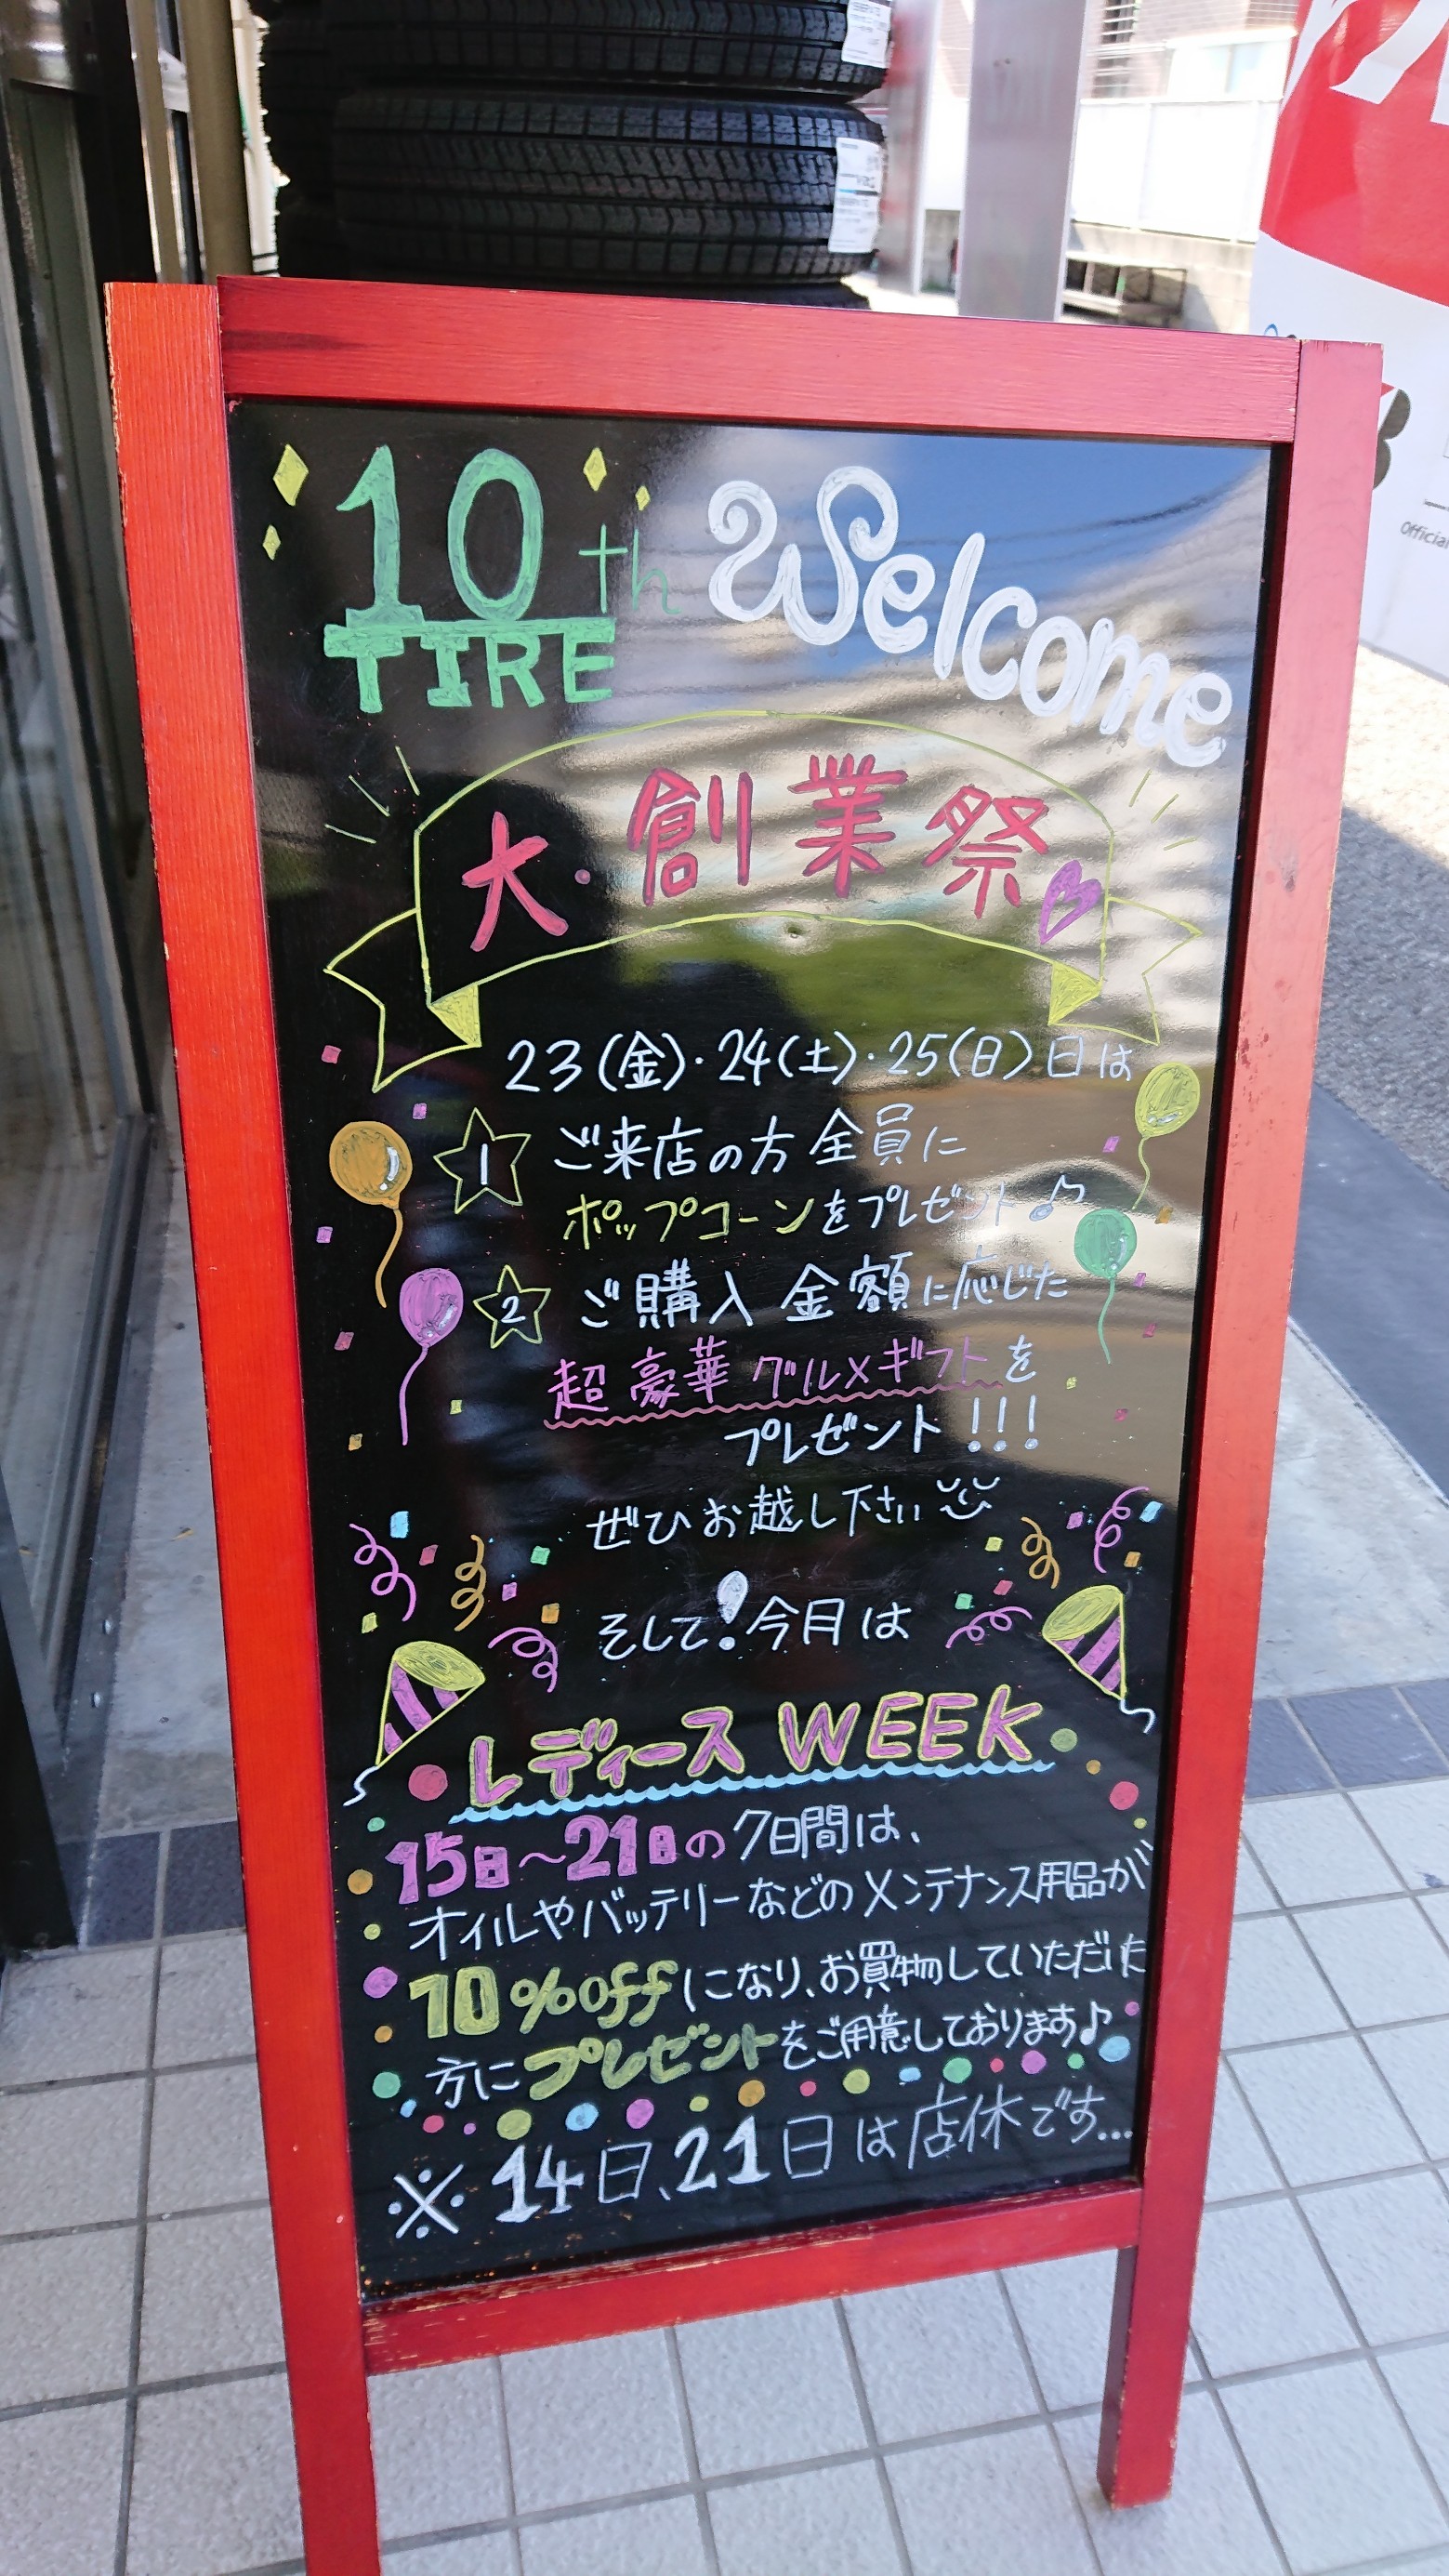 10th
TIRE
Welcome
大・創業祭
23(金)・24(土)・25(日)日は
1 ご来店の方全員に
ポップコーンをプレゼント♪
2 ご購入金額に応じた
超豪華グルメギフトを
プレゼント!!!
ぜひお越し下さい
そして!今月は
レディースWEEK
15日〜21日の7日間は、
オイルやバッテリーなどのメンテナンス用品が
10%offになり、お買物していただいた
方にプレゼントをご用意しております♪
※14日、21日は店休です...
Official